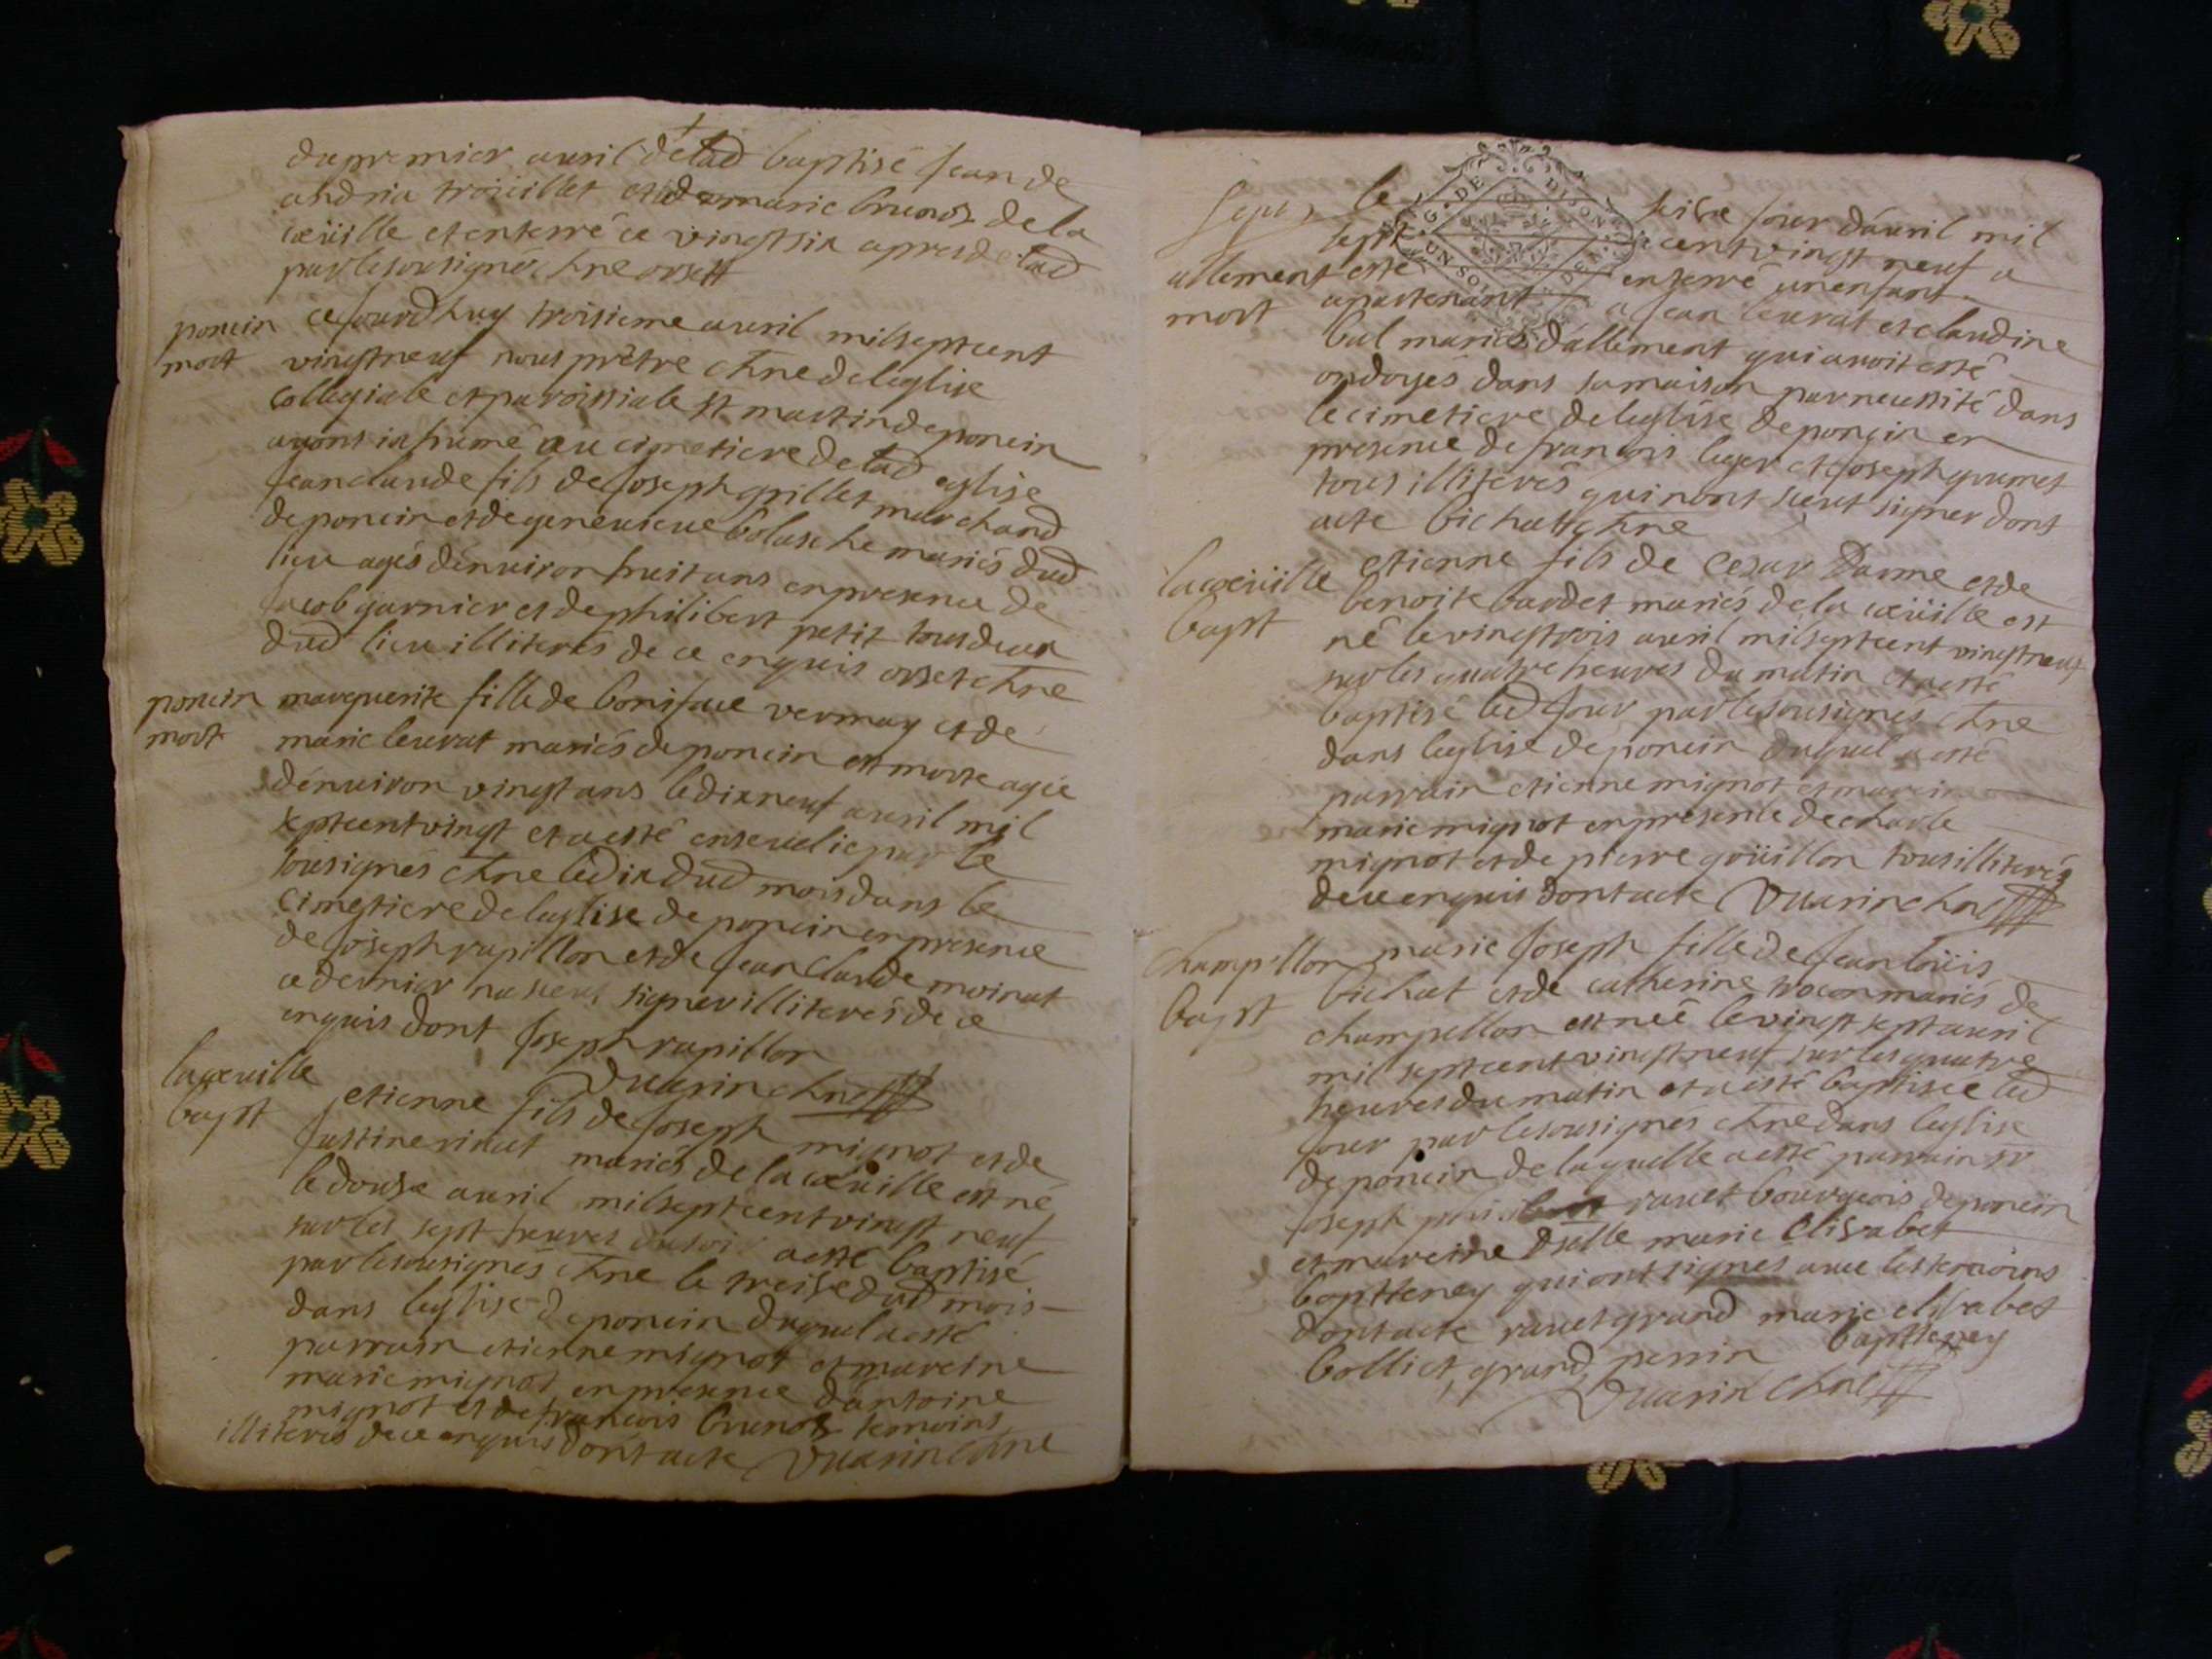 du premier auril delad baptisé Jean de
andria troüillet et de marie brunos de la
cœüille et enterré ce vingt six apres delad
par le sousigné chne orset
poncin
mort
ce Jourdhuy troisieme auril mil sept cent
vingt neuf nous prêtre chne de leglise
collegiale et paroissiale st martin de poncin
auons inhumé au cimetiere delad eglise
Jean claude fils de Joseph grillet marchand
de poncin et de geneuieue bolache mariés dud
lieu agés dénuiron huit ans en presence de
Jacob garnier et de philibert petit tous deux
dud lieu illiterés de ce enquis orset chne
poncin
mort
marguerite fille de boniface vermay et de
marie leurat mariés de poncin est morte agée
dénuiron vingt ans le dix neuf auril mil
sept cent vingt et a esté enseuelie par le
sousignés chne led ix dud mois dans le
cimetiere de leglise de poncin en presence
de Joseph rapillon et de Jean claude moinat
ce dernier na sceut signer illiterés de ce
enquis dont Joseph rapillon
Vuarin chne
la cœuille
bapt
etienne fils de Joseph mignot et de
Justine rinat mariés de la cœuille est né
le douse auril mil sept cent vingt neuf
sur les sept heures du soir a esté baptisé
par le sousignés chne le treise dud mois
dans leglise de poncin duquel a esté
parrain etienne mignot et mareine
marie mignot en presence dantoine
mignot et de francois brunos temoins
illiterés de ce enquis dont acte Vuarin chne
le seise Jour dáuril mil
sept cent vingt neuf a
allement
mort
esté enterré un enfant
apartenant a Jean leurat et claudine
bal mariés dállement qui auoit esté
ondoyés dans sa maison par necessité dans
le cimetiere de leglise de poncin en
presence de francois leger et Joseph grumet
tous illiterés qui n'ont sceut signer dont
acte bichatt chne
la cœüille
bapt
etienne fils de Cesar Darme et de
benoite bardet mariés de la cœüille est
né le vingt trois auril mil sept cent vingt neuf
sur les quatre heures du matin et a esté
baptisé led Jour par le sousignés chne
dans leglise de poncin duquel a esté
parrain etienne mignot et marein
marie mignot en presence de charle
mignot et de pierre goüillon tous illiterés
de ce enquis dont acte Vuarin chne
champillon
bapt
marie Joseph fille de Jean loüis
bichat et de catherine trocon mariés de
champellon est neé le vingt sept auril
mil sept cent vingt neuf sur les quatre
heures du matin et a esté baptisée led
Jour par le sousignés chne dans leglise
de poncin de laquelle a esté parrain sr
Joseph rauet bourgeois de poncin
et mareine dselle marie Elisabet
baptteney qui ont signés auec les temoins
dont acte rauet grand marie elisabet
baptteney
bolliet, grand perrin
Vuarin chne